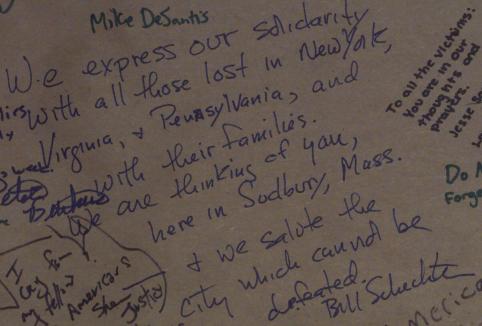 Mike DeSantis
We express our solidarity
with all those lost in New York,
Virginia, + Pennsylvania, and
with their families.
We are thinking of you,
here in Sudbury, Mass.
+ we salute the
city which cannot be
defeated.
Bill Schechter
To all the victims:
You are in our
thoughts and
prayers.
Jesse
Do N
Forge
I
cry for
my fellow
Americans
Justice
merica